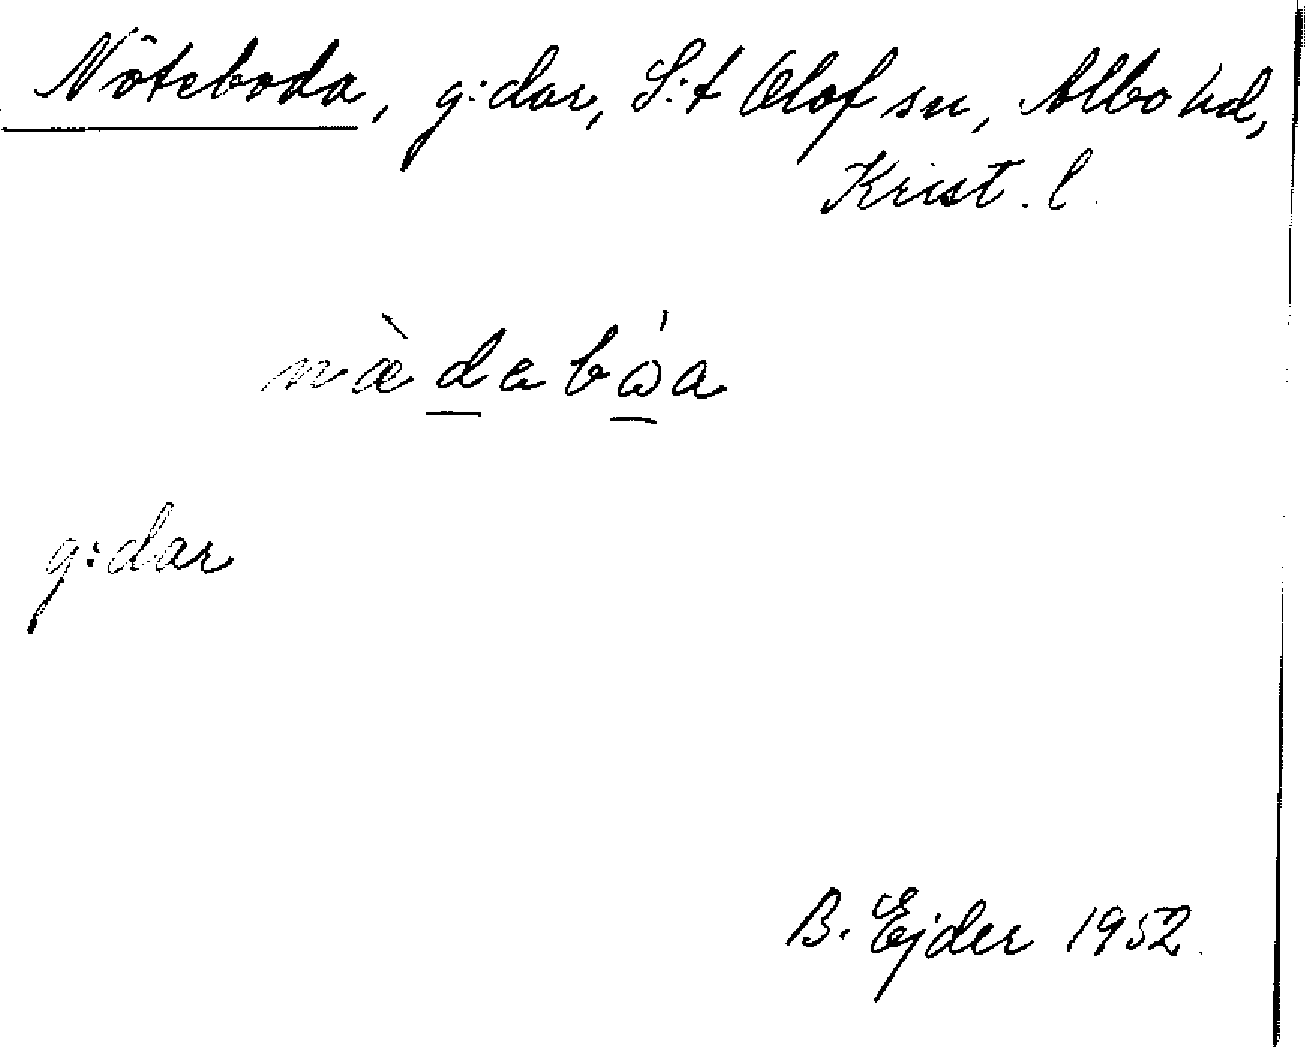 Nöteboda, g:dar, S:t Olof sn, Albo hd,
Krist. l.
nǽdabåa
g:dar
B. Ejder 1952.